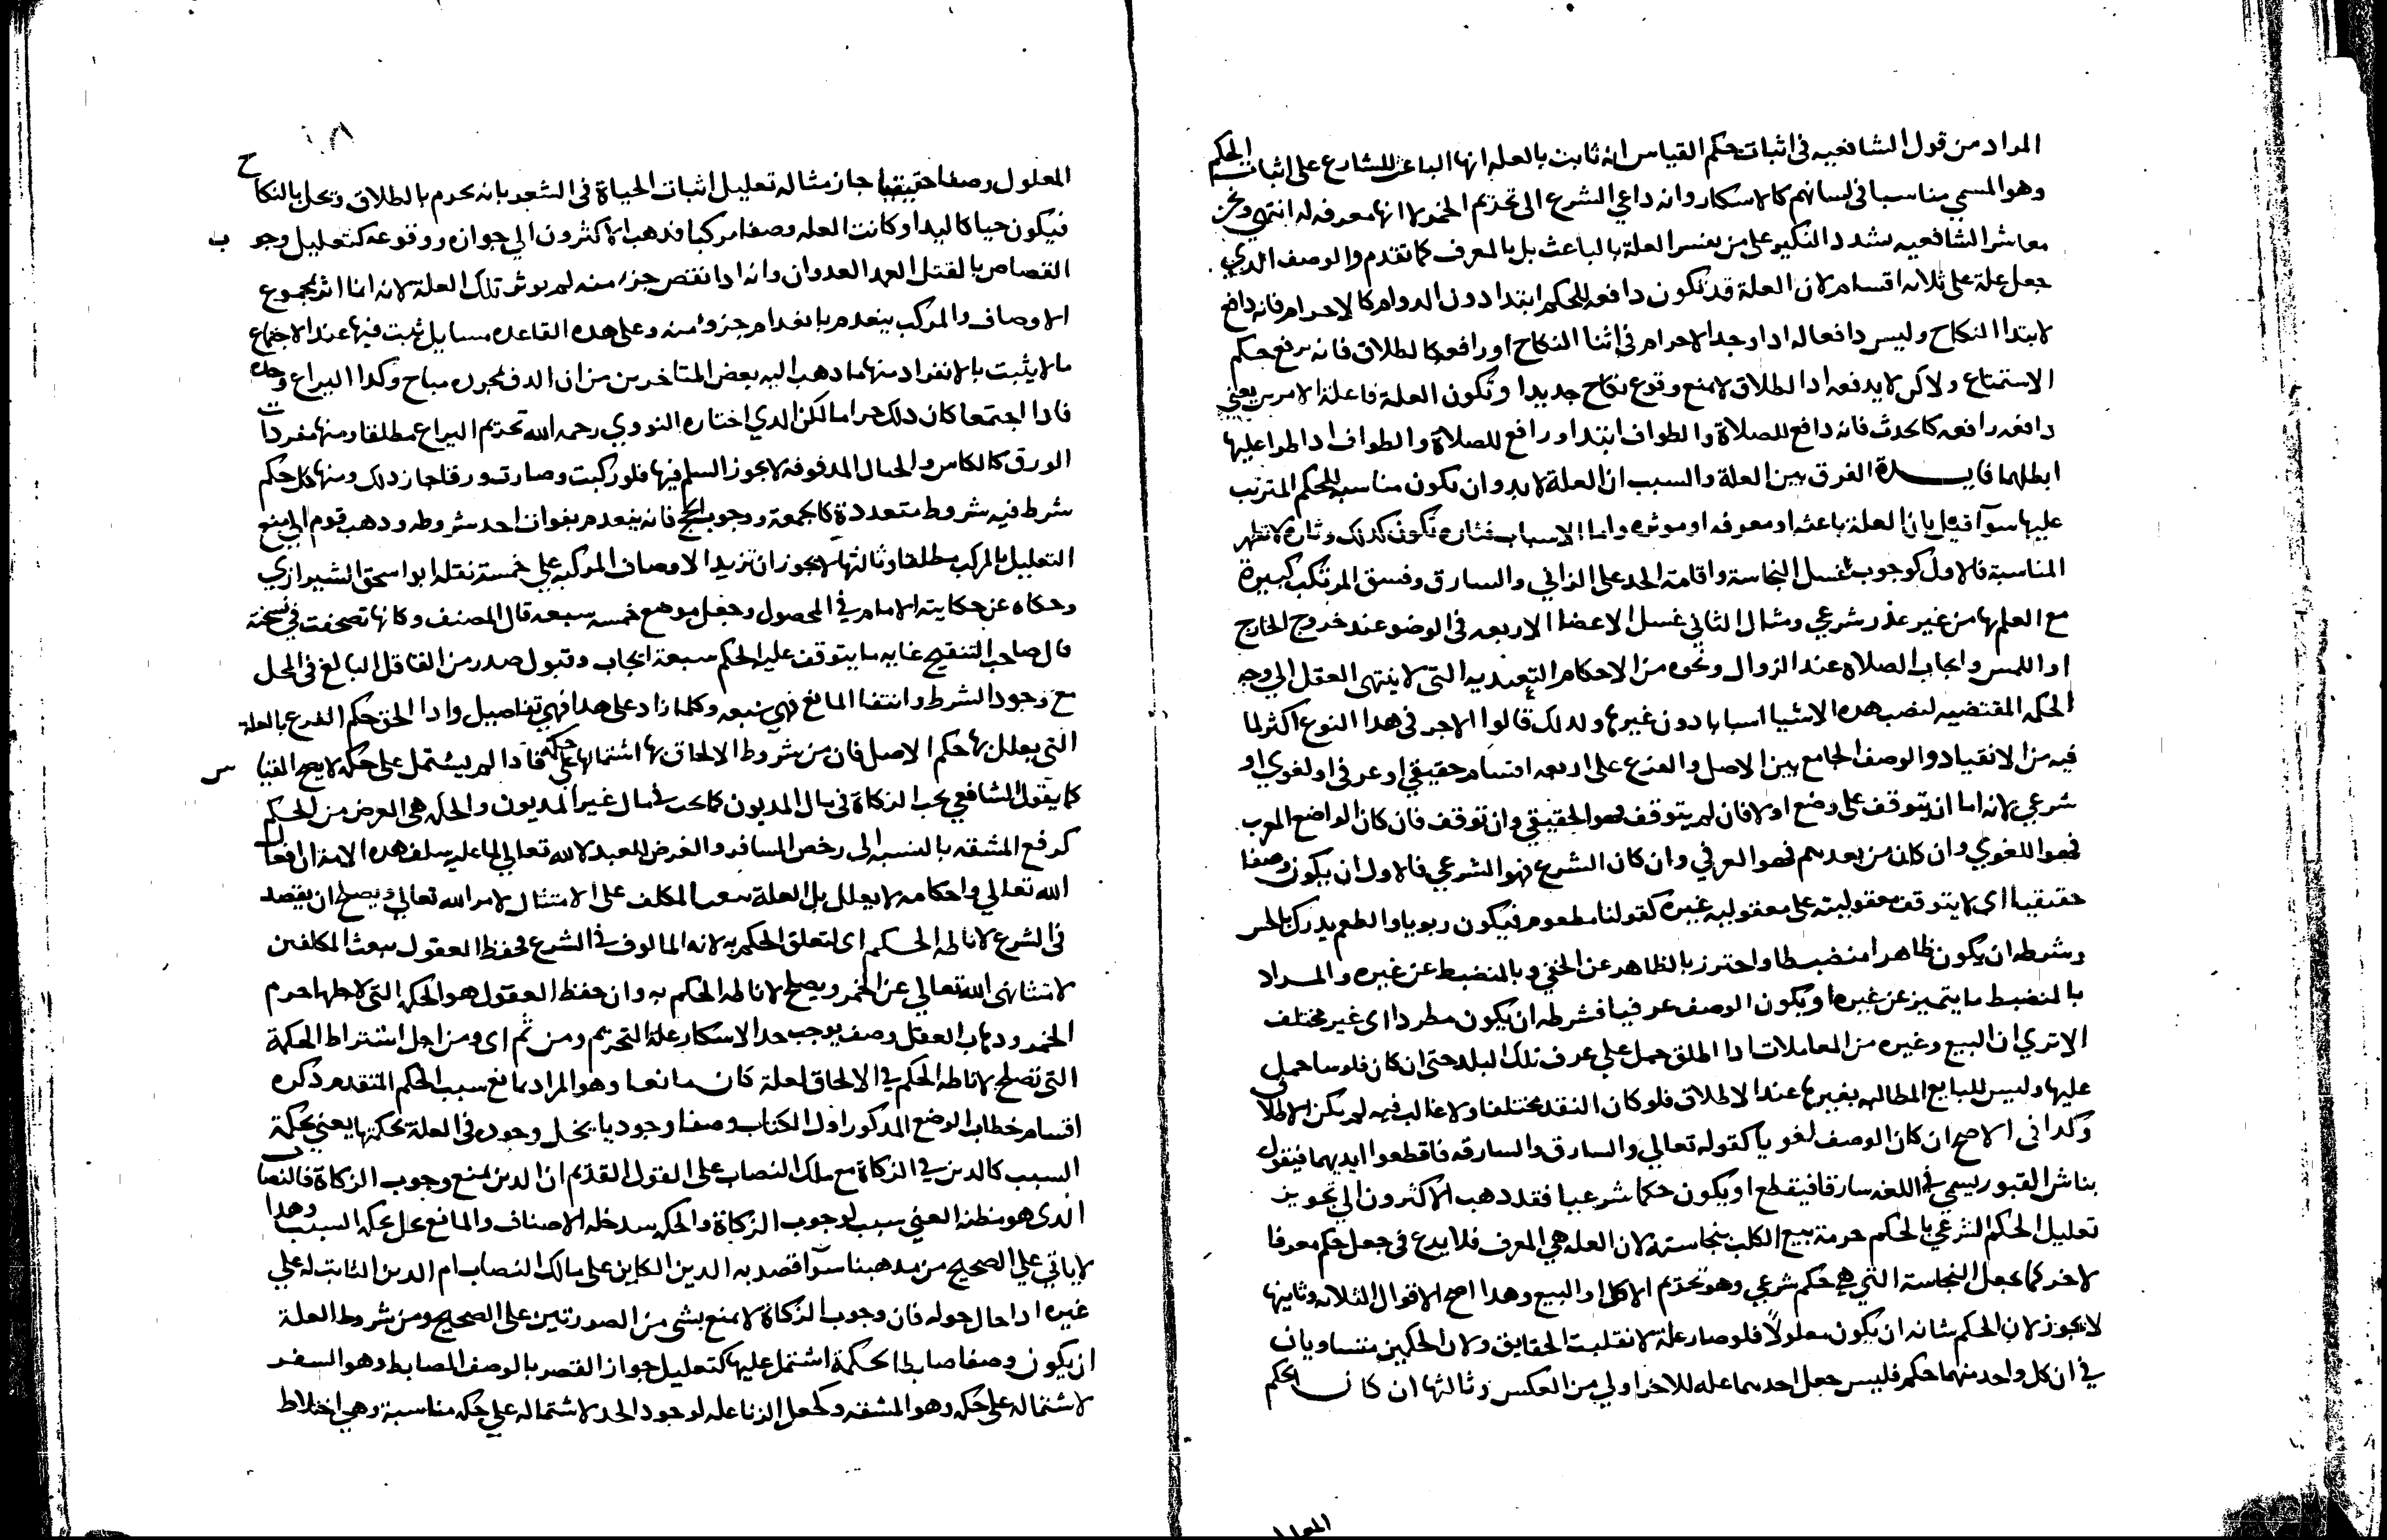 المراد من قول الشافعيه فى اثبات حكم القياس انه ثابت بالعله انها الباعث للشارع على اثبات الحكم
وهو المسمي مناسبا فى لسانهم كالاسكار وانه داعي الشرع الى تحريم الخمر لا انها معرفه له انتهى ونحن
معاشر الشافعيه نشدد النكير على من يفسر العلة بالباعث بل بالمعرف كما تقدم والوصف الذي
جعل علة على ثلاثه اقسام لان العلة قد تكون دافعه للحكم ابتدا دون الدوام كالاحرام فانه دافع
لابتدا النكاح وليس دافعا له اذا وجد الاحرام فى اثنا النكاح او رافعه كالطلاق فانه يرفع حكم
الاستمتاع ولاكن لا يدفعه اذ الطلاق لا يمنع وقوع نكاح جديد او تكون العلة فاعلة الامرين يعني
دافعه رافعه كالحدث فانه دافع للصلاة والطواف ابتدا ورافع للصلاة والطواف اذا طرا عليها
ابطلهما فايدة الفرق بين العلة والسبب ان العلة لا بد وان تكون مناسبه للحكم المترتب
عليها سوآ قيل بان العله باعثه او معرفه او موثره واما الاسباب فتاره تكون كذلك وتارة لا تظهر
المناسبة فالاول كوجوب غسل النجاسة واقامة الحد على الزاني والسارق وفسق المرتكب كبيرة
مع العلم بها من غير عذر شرعي ومثال الثاني غسل الاعضا الاربعه فى الوضو عند خروج الخارج
او اللمس وايجاب الصلاه عند الزوال ونحوه من الاحكام التعبديه التى لا ينتهى العقل الى وجه
الحكه المقتضيه لنصب هذه الاشيا اسبابا دون غيرها ولذلك قالوا الاجر فى هذا النوع اكثر لما
فيه من الانقياد والوصف الجامع بين الاصل والفرع على اربعه اقسام حقيقي او عرفى او لغوي او
شرعي لانه اما ان يتوقف على وضع اولا فان لم يتوقف فهو الحقيقي وان توقف فان كان الواضع العرب
فهو اللغوي وان كان من بعدهم فهو العرفي وان كان الشرع فهو الشرعي فالاول ان يكون وصفا
حقيقيا اى لا يتوقف معقوليته على معقوليه غيره كقولنا مطعوم فيكون ربويا والطعم يدرك بالحس
وشرطه ان يكون ظاهرا منضبطا واحترز بالظاهر عن الخفي وبالمنضبط عن غيره والمراد
بالمنضبط ما يتميز عن غيره او يكون الوصف عرفيا فشرطه ان يكون مطردا اى غير مختلف
الا تري ان البيع وغيره من المعاملات اذا اطلق حمل علي عرف تلك البلد حتى ان كان فلوسا حمل
عليها وليس للبايع المطالبه بغيرها عند الاطلاق فلو كان النقد مختلفا ولا غالب فيه لم يكن الاطلاق
وكذا فى الاصح ان كان الوصف لغويا كقوله تعالي والسارق والسارقه فاقطعوا ايديهما فيقول
بناش القبور يسمي فى اللغه سارقا فيقطع او يكون حكما شرعيا فقد ذهب الاكثرون الي تجويز
تعليل الحكم الشرعي بالحكم حرمة بيع الكلب بنجاسته لان العله هي المعرف فلا بدع فى جعل حكم معرفا
لاخر كما يجعل النجاسة التي هي حكم شرعي وهو تحريم الاكل او البيع وهذا اصح الاقوال الثلاثه وثانيها
لا يجوز لان الحكم شانه ان يكون معلولاً فلو صار علة لانقلبت الحقايق ولان الحكمين متساويان
في ان كل واحد منهما حكم فليس جعل احدهما عله للاخر اولي من العكس وثالثها ان كان الحكم
المعلول وصفا حقيقيا جاز مثاله تعليل اثبات الحياة فى الشعر بانه يحرم بالطلاق وتحل بالنكاح
فيكون حيا كاليد او كانت العله وصفا مركبا فذهب الاكثرون الي جوازه ووقوعه كتعليل وجوب
القصاص بالقتل العمد العدوان وانه اذا نقص جزء منه لم يوثر تلك العلة لانه انما اثر بمجموع
الاوصاف والمركب ينعدم بانعدام جزوء منه وعلى هذه القاعده مسايل ثبت فيها عند الاجتماع
ما لا يثبت بالانفراد منها ما ذهب اليه بعض المتاخرين من ان الدف بمجرده مباح وكذا اليراع وحده
فاذا اجتمعا كان ذلك حراما لكن الذي اختاره النووي رحمه الله تحريم اليراع مطلقا ومنها مفردات
الورق كالكاس والحبال المدقوقه لا يجوز السلم فيها فلو ركبت وصارت ورقا جاز ذلك ومنها كل حكم
شرط فيه شروط متعددة كالجمعة ووجوب الحج فانه ينعدم بفوات احد شروطه وذهب قوم الي منع
التعليل بالمركب مطلقا وثالثها لا يجوز ان تزيد الاوصاف المركبه علي خمسة نقله ابو اسحق الشيرازي
وحكاه عن حكايته الامام في المحصول وجعل موضع خمسه سبعه قال المصنف وكانها تصحفت في نسخته
قال صاحب التنقيح غايه ما يتوقف عليه الحكم سبعة ايجاب وقبول صدر من العاقل البالغ فى المحل
مع وجود الشرط وانتفا المانع فهي سبعه وكلما زاد على هذا فهي تفاصيل واذا الحق حكم الفرع بالعلة
التي يعلل بها حكم الاصل فان من شروط الالحاق بها اشتمالها على حكمه فاذا لم يشتمل على حكمه لا يصح القياس
كما يقول الشافعي يجب الزكاة فى مال المديون كما تجب في مال غير المديون والحكه هى الغرض من الحكم
كرفع المشقه بالنسبه الى رخص المسافر والغرض للعبد لا لله تعالي لما عليه سلف هذه الامة ان افعال
الله تعالي واحكامه لا يعلل بل العلة تبعث المكلف على الامتثال لامر الله تعالي ويصح ان يقصد
فى الشرع لاناطة الحكم اى لتعلق الحكم به لانه المالوف في الشرع فحفظ العقول يبعث المكلفين
لامتثال نهى الله تعالي عن الخمر ويصلح لاناطه الحكم به وان حفظ العقول هو الحكه التى لاجلها حرم
الخمر وذهاب العقل وصف يوجب حد الاسكار علة التحريم ومن ثم اى ومن اجل اشتراط الحكمة
التى تصلح لاناطه الحكم في الالحاق لعلة كان مانعها وهو المراد بمانع سبب الحكم المتقدم ذكره
اقسام خطاب الوضع المذكور اول الكتاب وصفا وجوديا يخل وجوده فى العلة بحكمتها يعني بحكمة
السبب كالدين في الزكاة مع ملك النصاب على القول القديم ان الدين يمنع وجوب الزكاة فالنصاب
الذى هو مظنه الغني سبب لوجوب الزكاة والحكه سد خله الاصناف والمانع يخل بحكمه السبب وهذا
لا ياتي علي الصحيح من مذهبنا سوآ قصد به الدين الكاين على مالك النصاب ام الدين الثابت له علي
غيره اذا حال حوله فان وجوب الزكاة لا يمنع بشى من الصورتين على الصحيح ومن شروط العلة
ان يكون وصفا ضابطا لحكمة اشتمل عليها كتعليل جواز القصر بالوصف الضابط وهو السفر
لاشتماله على حكه وهو المشقه وكجعل الزنا عله لوجود الحد لاشتماله علي حكه مناسبة وهي اختلاط